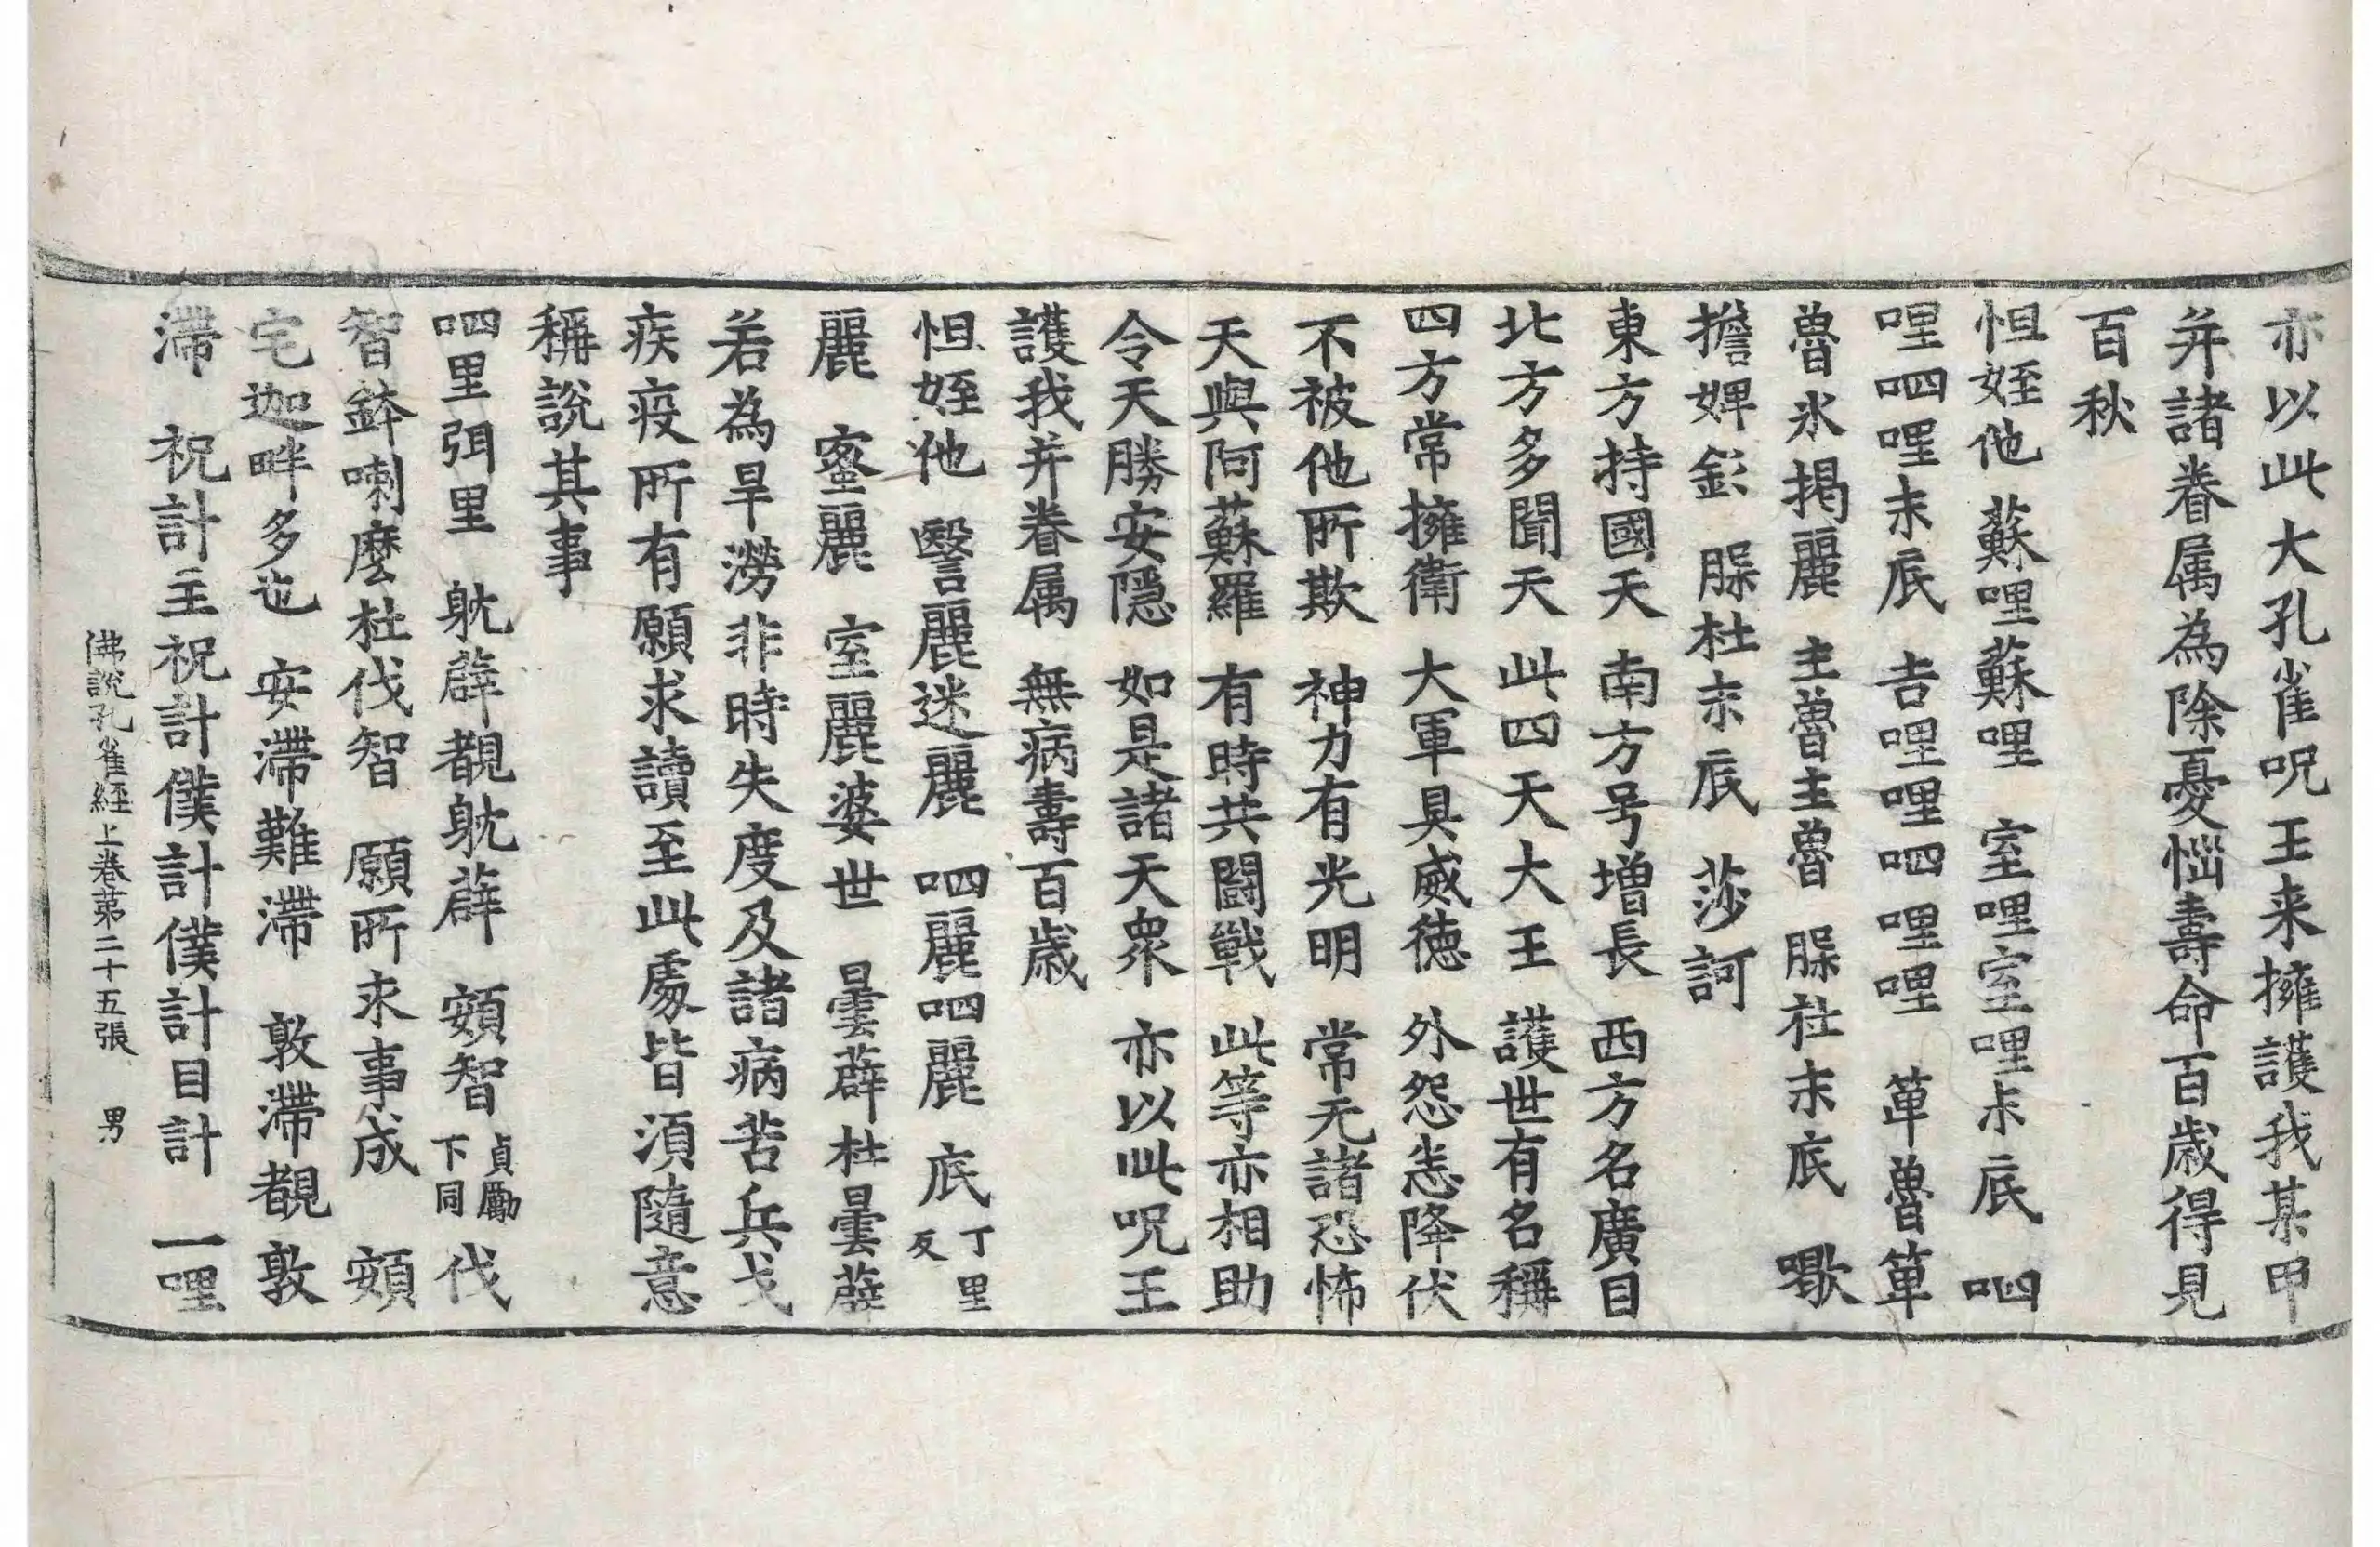 亦以此大孔雀呪王来擁護我某甲
并諸眷属為除憂惱壽命百歲得見
百秋
怛姪他 蘇哩蘇哩 室哩室哩末底 呬
哩呬哩末底 吉哩哩呬哩哩 箄魯箄
魯氷揭麗 主魯主魯 脲杜末底 㗿
擔婢㲸 脲杜末底 莎訶
東方持國天 南方号增長 西方名廣目
北方多聞天 此四天大王 護世有名稱
四方常擁衛 大軍具威德 外怨恙降伏
不被他所欺 神力有光明 常无諸恐怖
天與阿蘇羅 有時共闘戰 此等亦相助
令天勝安隱 如是諸天衆 亦以此呪王
護我并眷属 無病壽百歲
怛姪他 醫麗迷麗 呬麗呬麗 底丁里反
麗 蜜麗 室麗婆世 曇薜杜曇薜
若為旱澇非時失度及諸病苦兵戈
疾疫所有願求讀至此處皆須隨意
稱說其事
呬里弭里 躭薜覩躭薜 頞智貞勵下同 伐
智鉢喇麽杜伐智 願所求事成 頞
宅迦畔多也 安滯難滯 敦滯覩敦
滯 祝計主祝計僕計僕計目計 一哩
佛說孔雀經上卷第二十五張 男